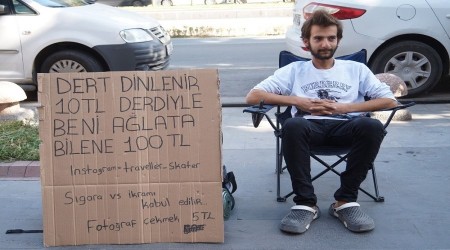 DERT DİNLENİR
10TL DERDİYLE
BENİ AĞLATA
BİLENE 100 TL
Instagram: traveller_skater
Sigara vs ikramı
kabul edilir
Fotoğraf çekmek 5TL